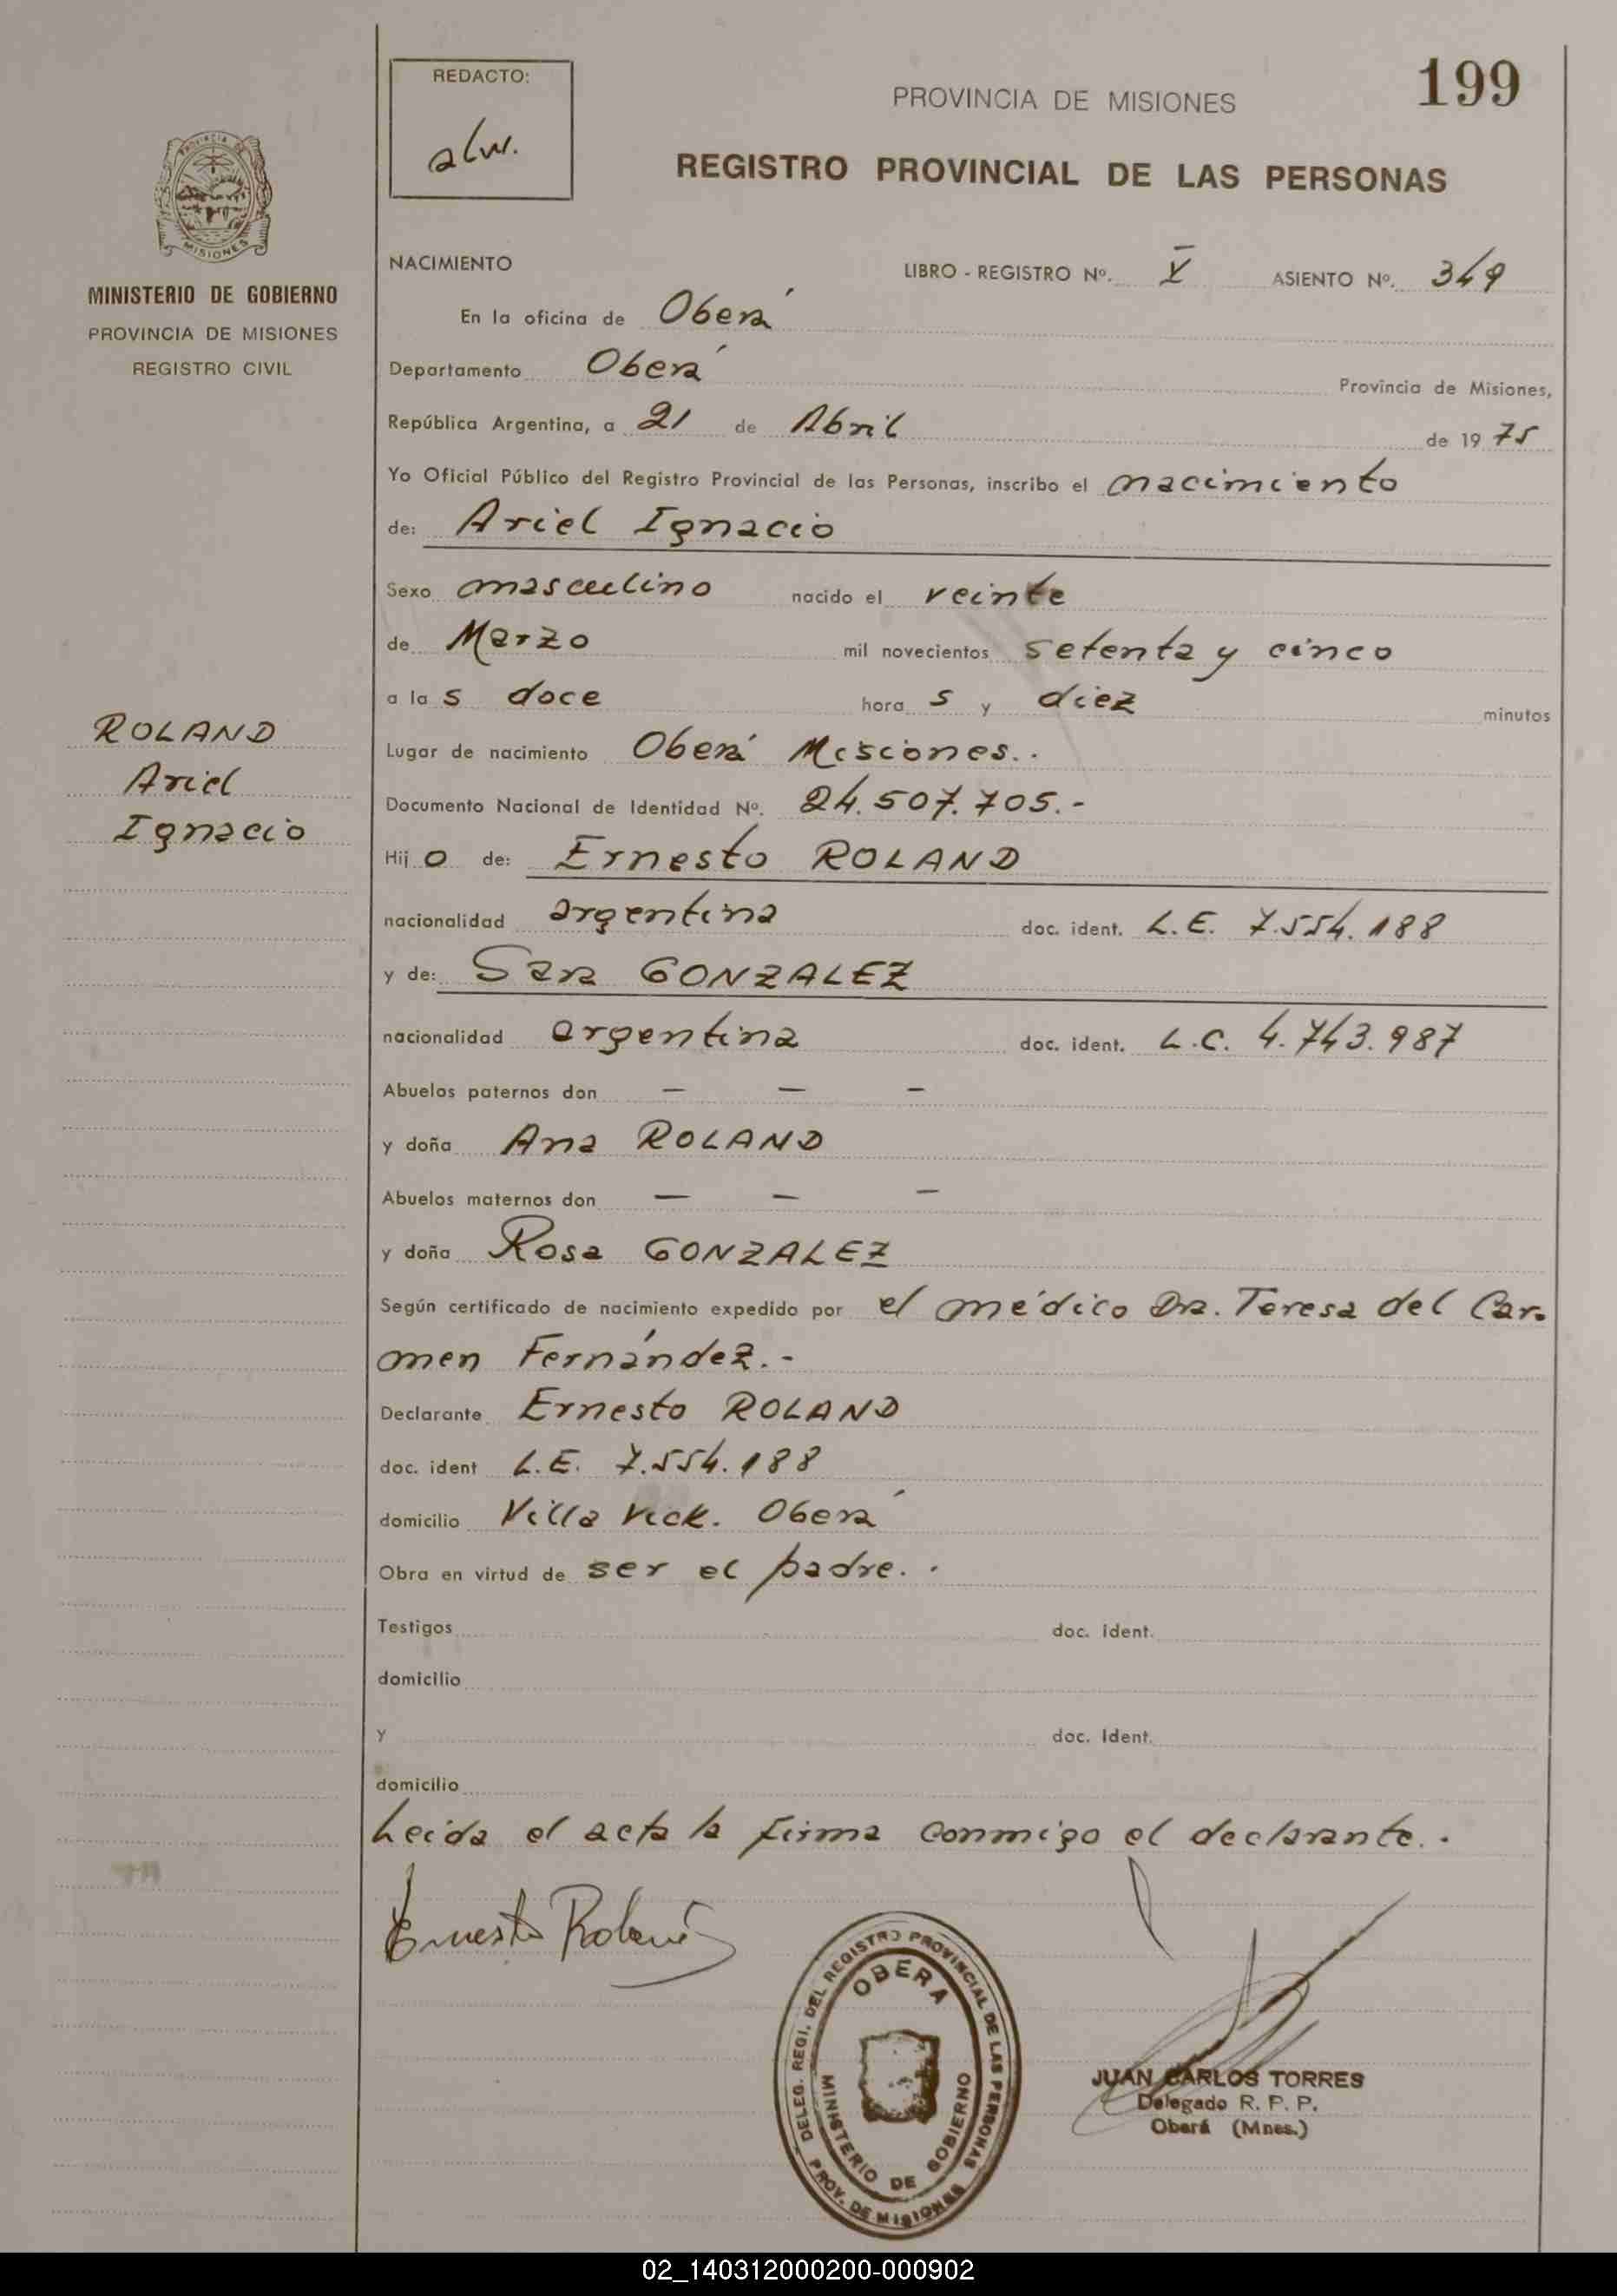 REDACTO:
alw.
PROVINCIA DE MISIONES
199
REGISTRO PROVINCIAL DE LAS PERSONAS
PROVINCIA DE MISIONES
MINISTERIO DE GOBIERNO
PROVINCIA DE MISIONES
REGISTRO CIVIL
NACIMIENTO LIBRO - REGISTRO Nº. V ASIENTO Nº. 349
En la oficina de Oberá
Departamento Oberá Provincia de Misiones,
República Argentina, a 21 de Abril de 19 75
Yo Oficial Público del Registro Provincial de las Personas, inscribo el nacimiento
de: Ariel Ignacio
Sexo masculino nacido el veinte
de Marzo mil novecientos setenta y cinco
a la s doce hora s y diez minutos
ROLAND
Ariel
Ignacio
Lugar de nacimiento Oberá Misiones.-
Documento Nacional de Identidad Nº. 24.507.705.-
Hij o de: Ernesto ROLAND
nacionalidad argentina doc. ident. L.E. 7.554.188
y de: Sara GONZALEZ
nacionalidad argentina doc. ident. L.C. 4.743.987
Abuelos paternos don — — —
y doña Ana ROLAND
Abuelos maternos don — — —
y doña Rosa GONZALEZ
Según certificado de nacimiento expedido por el médico Dra. Teresa del Car-
men Fernández.-
Declarante Ernesto ROLAND
doc. ident L.E. 7.554.188
domicilio Villa Vick. Oberá
Obra en virtud de ser el padre.-
Testigos doc. ident.
domicilio
y doc. Ident.
domicilio
Leida el acta la firma conmigo el declarante.-
Ernesto Roland
DELEG. REGI. DEL REGISTRO PROVINCIAL DE LAS PERSONAS
OBERA
MINISTERIO DE GOBIERNO
PROV. DE MISIONES
JUAN CARLOS TORRES
Delegado R. P. P.
Oberá (Mnes.)
02_140312000200-000902